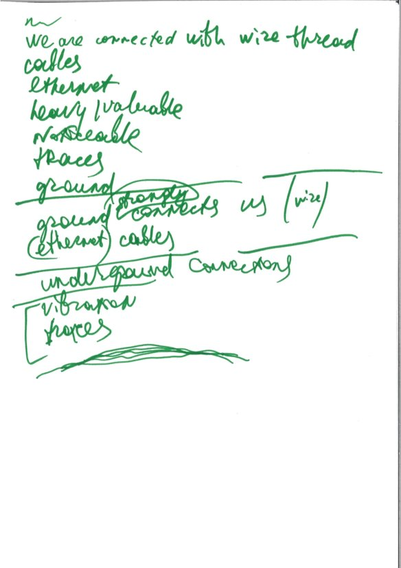 we are connected with wire thread
cables
ethernet
heavy/valuable
Noticeable
traces
ground
strongly
ground connects us (wire)
(ethernet) cables
underground connections
vibration
traces